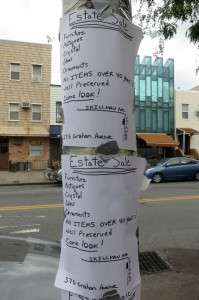 Estate Sale
Furniture
Antiques
Crystal
Glass
Ornaments
All ITEMS OVER 40
Well Preserved
Come look!
SKILLMAN AVE
378 Graham Avenue
Estate Sale
Furniture
Antiques
Crystal
Glass
Ornaments
All ITEMS OVER 40
Well Preserved
Come look!
SKILLMAN AVE
378 Graham Avenue
Estate Sale